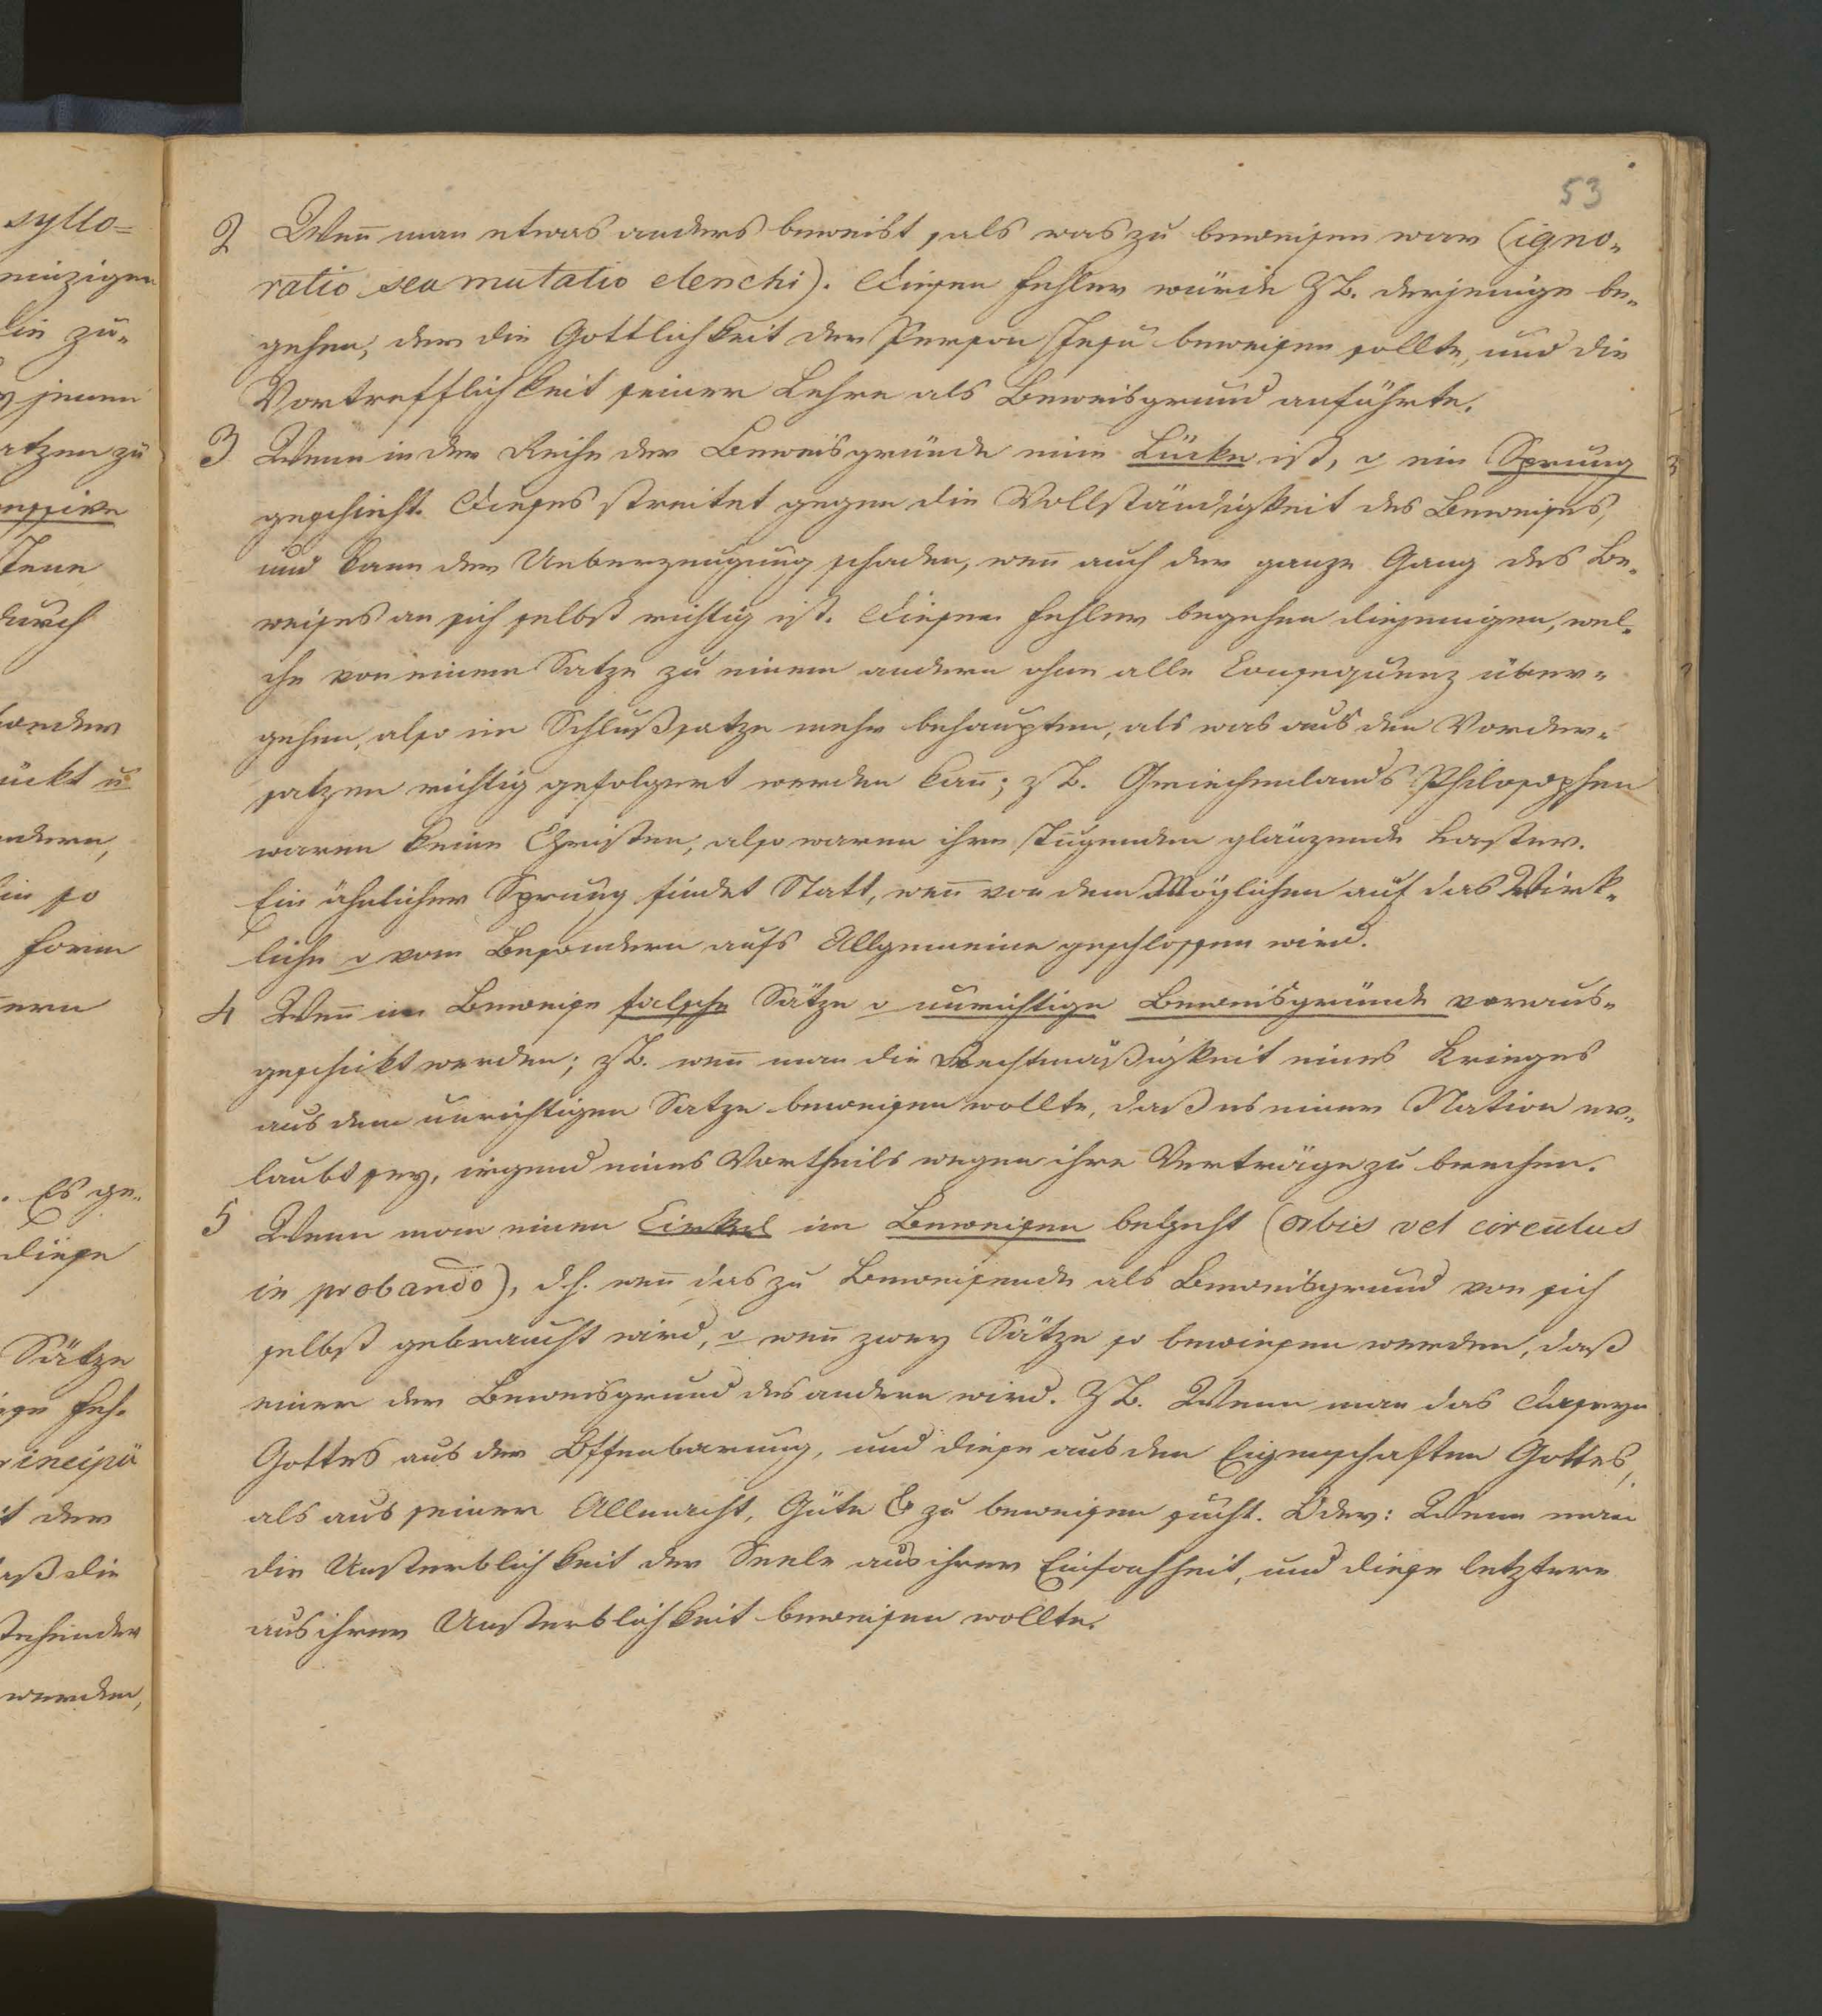 53
2 Weñ man etwas anders beweist, als was zu beweisen war (igno-
ratio seu mutatio elenchi). Diesen Fehler würde Z.B. derjenige be-
gehen, der die Gottlichkeit der Person Jesu beweisen sollte, und die
Vortrefflichkeit seiner Lehre als Beweisgrund anführte.
3 Wenn in der Reihe der Beweisgründe eine Lücke ist, o ein Sprung
geschieht. Dieses streitet gegen die Vollständigkeit des Beweises,
und kann der Ueberzeugung schaden, weñ auch der ganze Gang des Be-
weises an sich selbst richtig ist. Diesen Fehler begehen diejenigen, wel-
che von einem Satze zu einem andern ohne alle Consequenz über-
gehen, also im Schlußsatze mehr behaupten, als was aus den Vorder-
satzen richtig gefolgert werden kañ; z.B. Griechenlands Philosophen
waren keine Christen, also waren ihre Tugenden glänzende Laster.
Ein ähnlicher Sprung findet Statt, weñ von dem Möglichen auf das Wirk-
liche o vom Besondern aufs Allgemeine geschlossen wird.
4 Weñ im Beweise falsche Sätze o unrichtige Beweisgründe voraus-
geschickt werden; z.B. weñ man die Rechtmäßigkeit eines Krieges
aus dem unrichtigen Satze beweisen wollte, daß es einer Nation er-
laubt sey, irgend eines Vortheils wegen ihre Verträge zu brechen.
5 Wenn man einen Cirkel im Beweisen begeht (orbis vel circulus
in probando), d.h. weñ das zu Beweisende als Beweisgrund von sich
selbst gebraucht wird, o weñ zwey Sätze so bewiesen werden, daß
einer der Beweisgrund des andern wird. Z.B. Wenn man das Daseyn
Gottes aus der Offenbarung, und diese aus den Eigenschaften Gottes,
als aus seiner Allmacht, Güte &c zu beweisen sucht. Oder: Wenn man
die Unsterblichkeit der Seele aus ihrer Einfachheit, und diese letztere
aus ihrer Unsterblichkeit beweisen wollte.